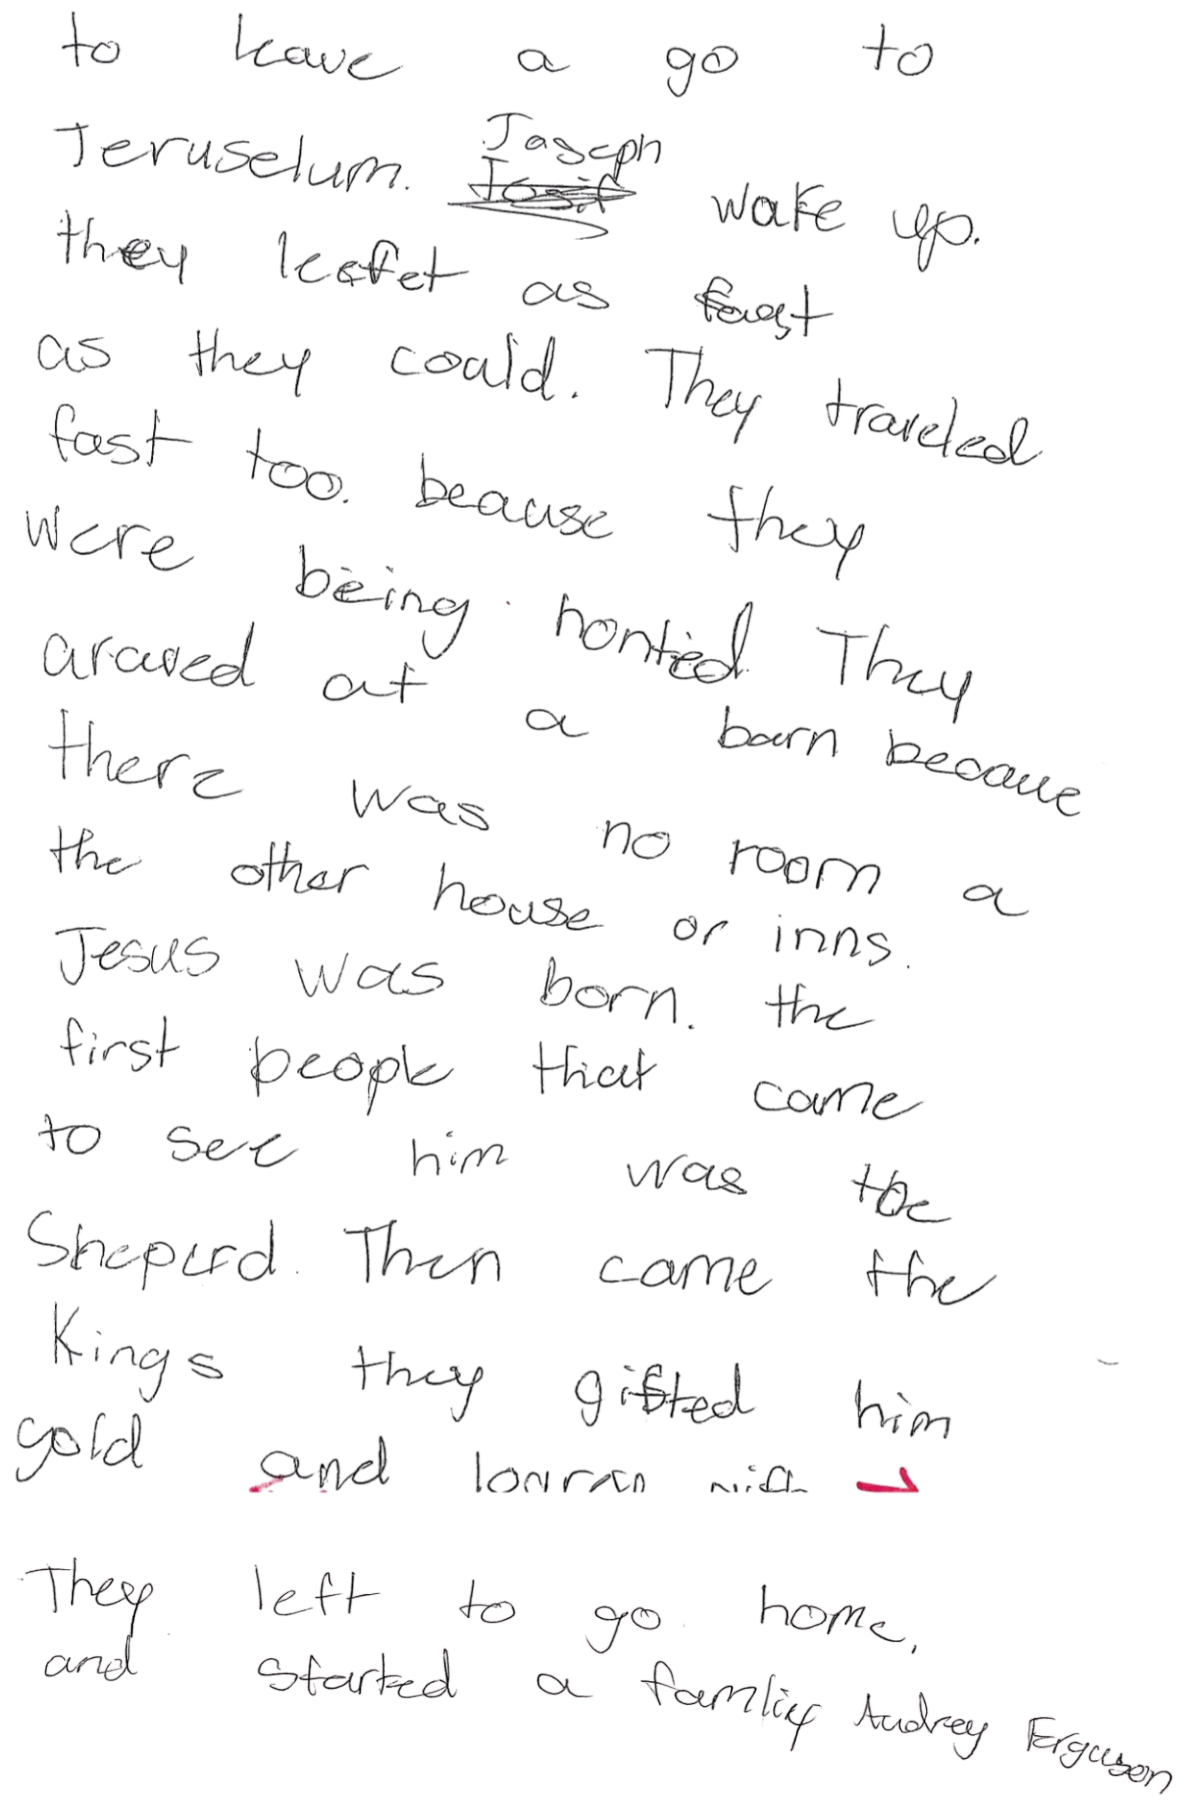 to leave a go to
Jeruselum. Joseph wake up.
they leafet as fast
as they could. They traveled
fast too. beause they
were being honted. They
araved at a barn becaue
there was no room a
the other house or inns.
Jesus was born. the
first people that came
to see him was the
Sheperd. Then came the
Kings they gifted him
gold and
They left to go home,
and started a famliy Audrey Ferguson